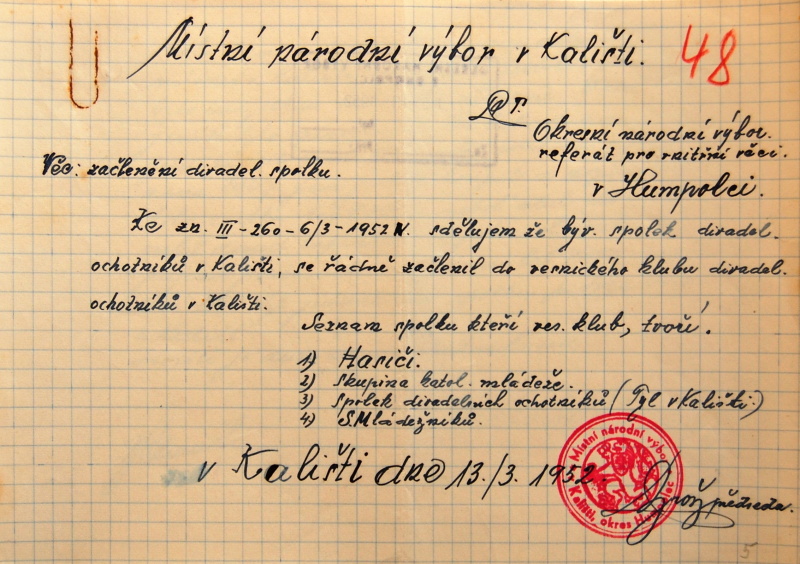 Místní národní výbor v Kališti.
48
Pt.
Okresní národní výbor.
referát pro vnitřní věci.
v Humpolci.
Věc: začlenění divadel. spolku.
Ke zn. III - 260 - 6/3 - 1952 N. sdělujem že býv. spolek divadel.
ochotníků v Kališti, se řádně začlenil do vesnického klubu divadel.
ochotníků v Kališti.
Seznam spolku kteří ves. klub, tvoří.
1) Hasiči.
2) Skupina katol. mládeže.
3) Spolek divadelních ochotníků (Tyl v Kališti.)
4) S.Mládežníků.
v Kališti dne 13./3. 1952.
předseda.
Místní národní výbor
Kališti, okres Humpolec
5